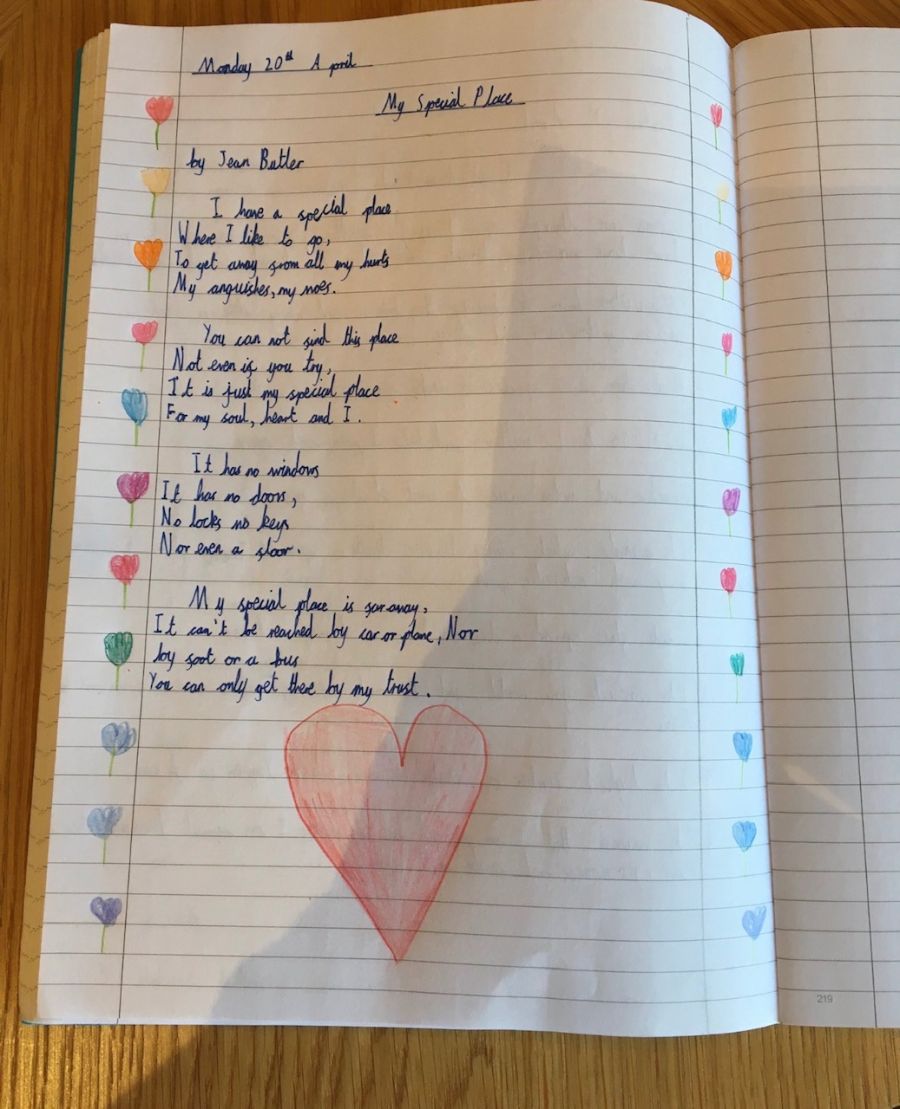 Monday 20th April
My Special Place
by Jean Butler
I have a special place
Where I like to go,
To get away from all my hurts
My anguishes, my woes.
You can not find this place
Not even if you try,
It is just my special place
For my soul, heart and I.
It has no windows
It has no doors,
No locks no keys
Nor even a floor.
My special place is far away,
It can't be reached by car or plane, Nor
by foot or a bus
You can only get there by my trust.
219